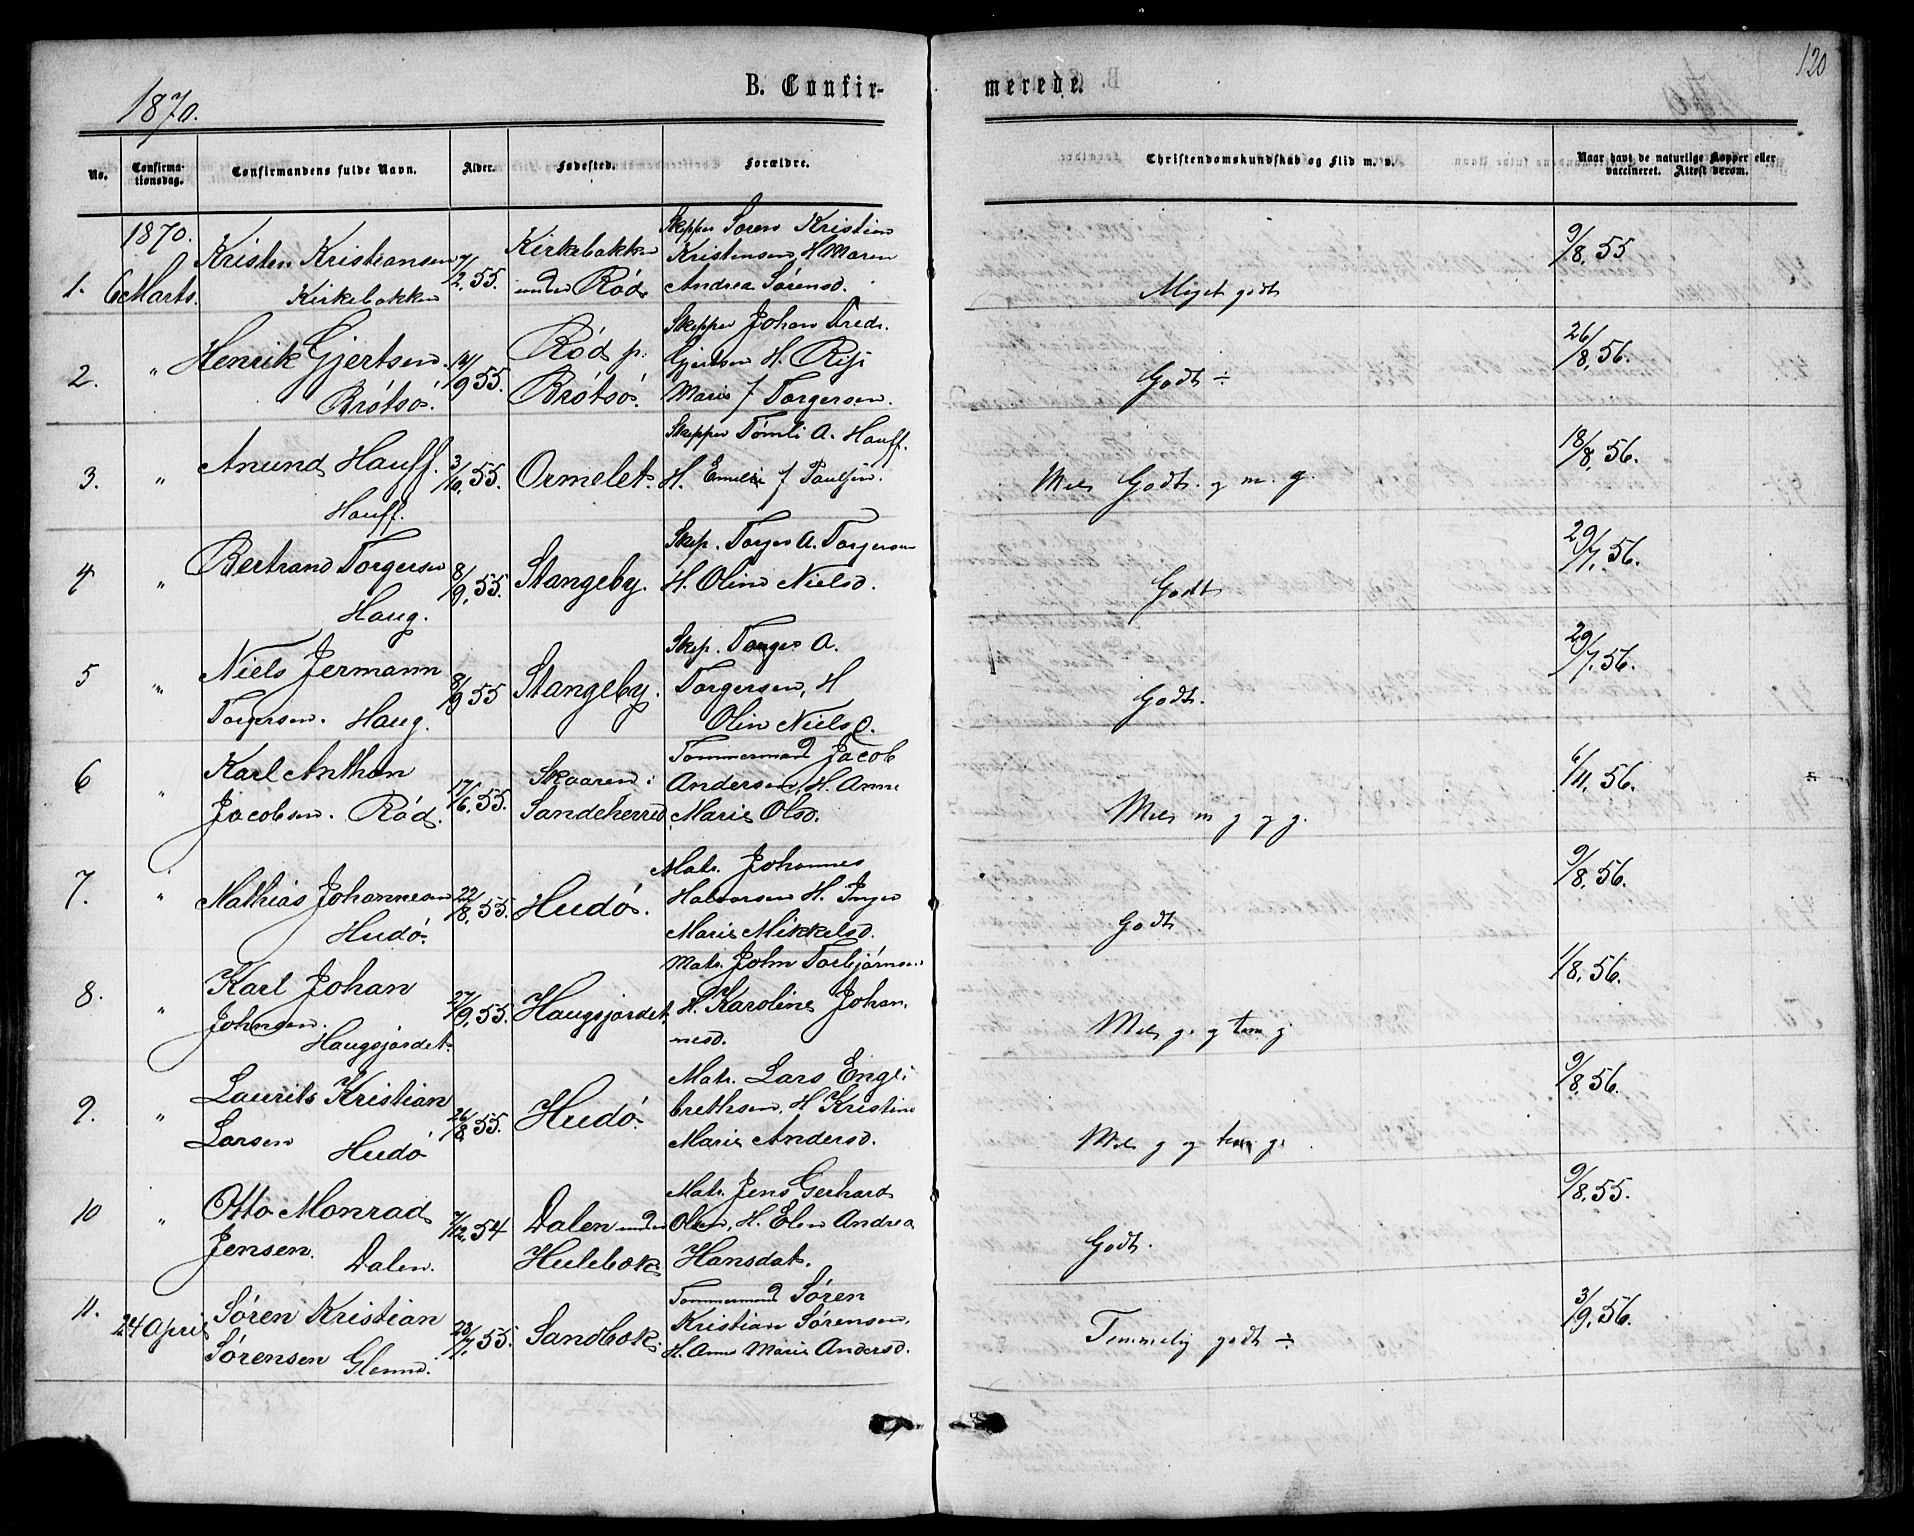 120
1870.
B. Confir-
merede.
No.
Confirma-
tionsdag.
Confirmandens fulde Navn.
Alder.
Fødested.
Forældre.
Christendomskundskab og Flid m. v.
Naar havt de naturlige Kopper eller
vaccineret. Attest derom.
1870.
1. 6 Marts.
Kristen Kristiansen
Kirkebakken
7/2 55.
Kirkebakken
under Rød.
Skipper Søren Kristian
Kristensen H. Maren
Andrea Sørensd.
Meget godt
9/8, 55
2. "
Henrik Gjertsen.
Brøtsø.
/9 55.
Rød p.
Brøtsø.
Skipper Johan Fredr.
Gjertsen H.
Marie f Torgersen.
Godt ÷
26/8, 56.
3. "
Anund Hauff.
Hauff.
3/10, 55.
Ormelet.
Skipper Tømli A. Hauff.
H. Emelie f Paulsen.
Mel. Godt. og m. g.
18/8, 56.
4 "
Bertrand Torgersen
Haug.
8/9, 55.
Stangeby.
Skip. Torger A. Torgersen
H. Oline Nielsd.
Godt
29/7, 56.
5 "
Niels Jermann
Torgersen. Haug.
8/9 55
Stangeby.
Skip. Torger A.
Torgersen, H
Olin Nielsd.
Godt.
29/7, 56.
6 "
Karl Anthon
Jacobsen. Rød.
17/6, 55.
Skaaren i
Sandeherred
Tømmermand Jacob
Andersen, H. Anne
Marie Olsd.
Mel. m g og g.
6/11, 56.
7. "
Mathias Johannesen
Hudø.
22/8, 55.
Hudø.
Matr. Johannes
Halvorsen H. Inger
Marie Mikkelsd.
Godt
9/8, 56.
8. "
Karl Johan
Johnsen.
Haugsjordet.
27/9, 55.
Haugsjordet.
Matr. John Torbjørnsen
H. Karoline Johan
nesd.
Mel. g. og tem g.
1/8, 56.
9. "
Laurits Kristian
Larsen Hudø
26/8, 55.
Hudø.
Matr. Lars Enge
brethsen, H Kristine
Marie Andersd.
Mel. g og tem g.
9/8, 56.
10 "
Otto Monrad
Jensen. Dalen.
7/12, 54
Dalen under
Hulebak
Matr. Jens Gerhard
Olsen, H. Elen Andrea
Hansdat.
Godt.
9/8, 55.
11. 24 April
Søren Kristian
Sørensen Glenne.
23/7, 55.
Sandbak
Tømmermand Søren
Kristian Sørensen,
H. Anne Marie Andersd.
Temmelig godt ÷
3/9, 56.